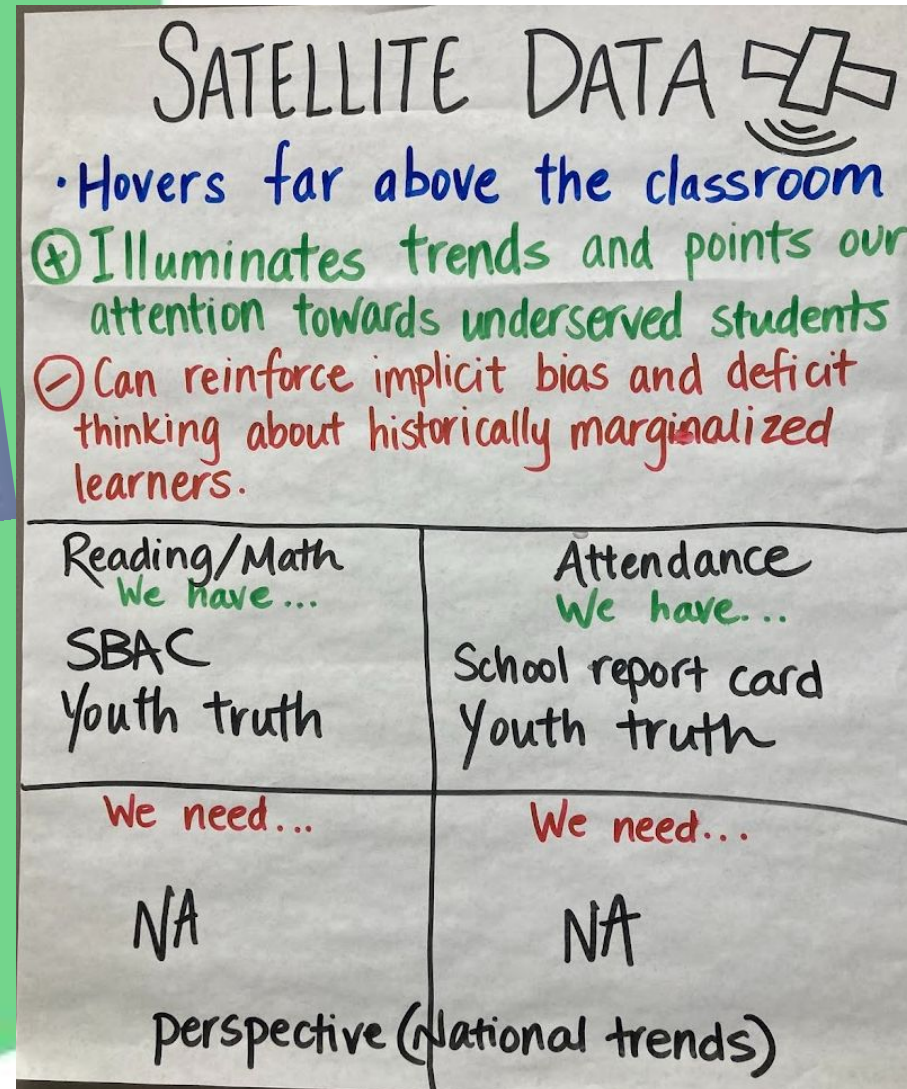 SATELLITE DATA
·Hovers far above the classroom
⊕ Illuminates trends and points our
attention towards underserved students
⊖ Can reinforce implicit bias and deficit
thinking about historically marginalized
learners.
Reading/Math
We have...
SBAC
Youth truth
Attendance
We have...
School report card
Youth truth
We need...
NA
We need...
NA
perspective (National trends)